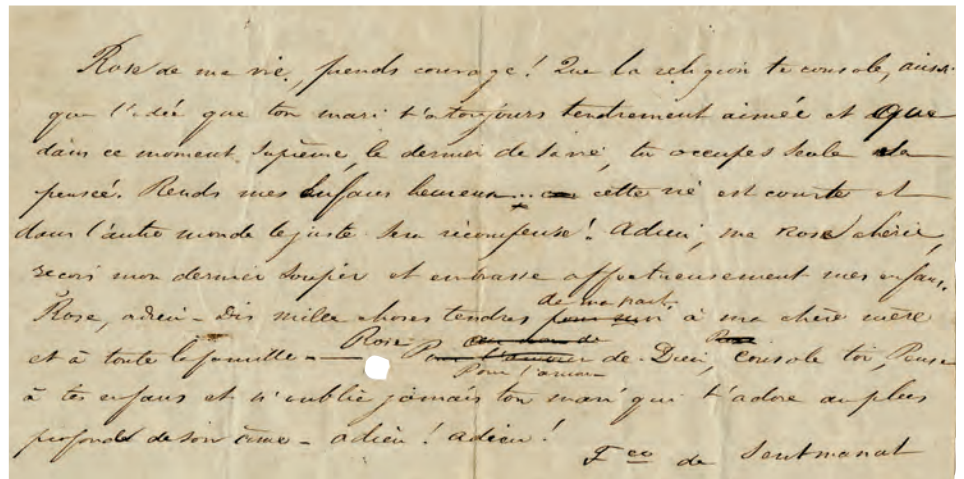 Rose de ma vie, prends courage! Que la religion te console, ainsi
que l'idée que ton mari t'a toujours tendrement aimée et que
dans ce moment suprème, le dernier de sa vie, tu occupes seule sa
pensée. Rends mes enfans heureux... car cette vie est courte et
dans l'autre monde le juste sera récompensé! Adieu, ma Rose chérie,
reçois mon dernier soupir et embrasse affectueusement mes enfans.
de ma part
Rose, adieu - dis mille choses tendres à ma chère mère
et à toute la famille - Rose Pour l'amour de Dieu, console toi, Pense
à tes enfans et n'oublie jamais ton mari qui t'adore au plus
profond de son âme - adieu! adieu!
Fco de Sentmanat